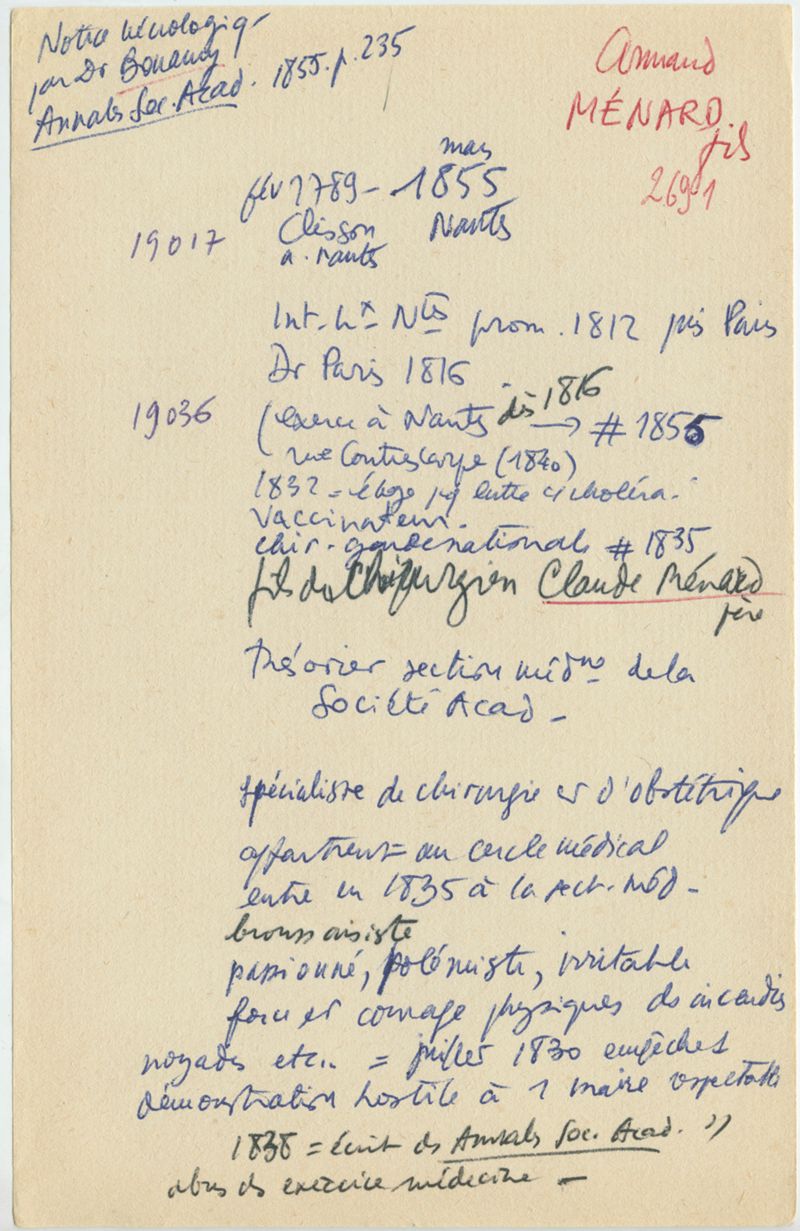 Notice nécrologiq-
par Dr Bonamy
Annales Soc. Acad. 1855. p. 235
Armand
MÉNARD
fils
2691
mars
fév 1789 - 1855
19017 Clisson Nantes
a. nantes
Int. hx Ntes prom. 1812 puis Paris
Dr Paris 1816
19036 (exerce à Nantes dès 1816 → # 1855
rue Contrescarpe (1840)
1832 = éloge lutte choléra.
Vaccinateur.
chir. garde nationale # 1835
fils du Chirurgien Claude Ménard
père
trésorier section médno de la
Société Acad -
spécialiste de chirurgie et d'obstétrique
appartient = au cercle médical
entre en 1835 à la sect. méd -
broussaisiste
passionné, polémiste, irritable
force et courage physiques ds incendies
noyades etc.. = juillet 1830 empêche
démonstration hostile à 1 maire respectable
1838 = écrit ds Annales Soc. Acad. "
abus ds exercice médecine -